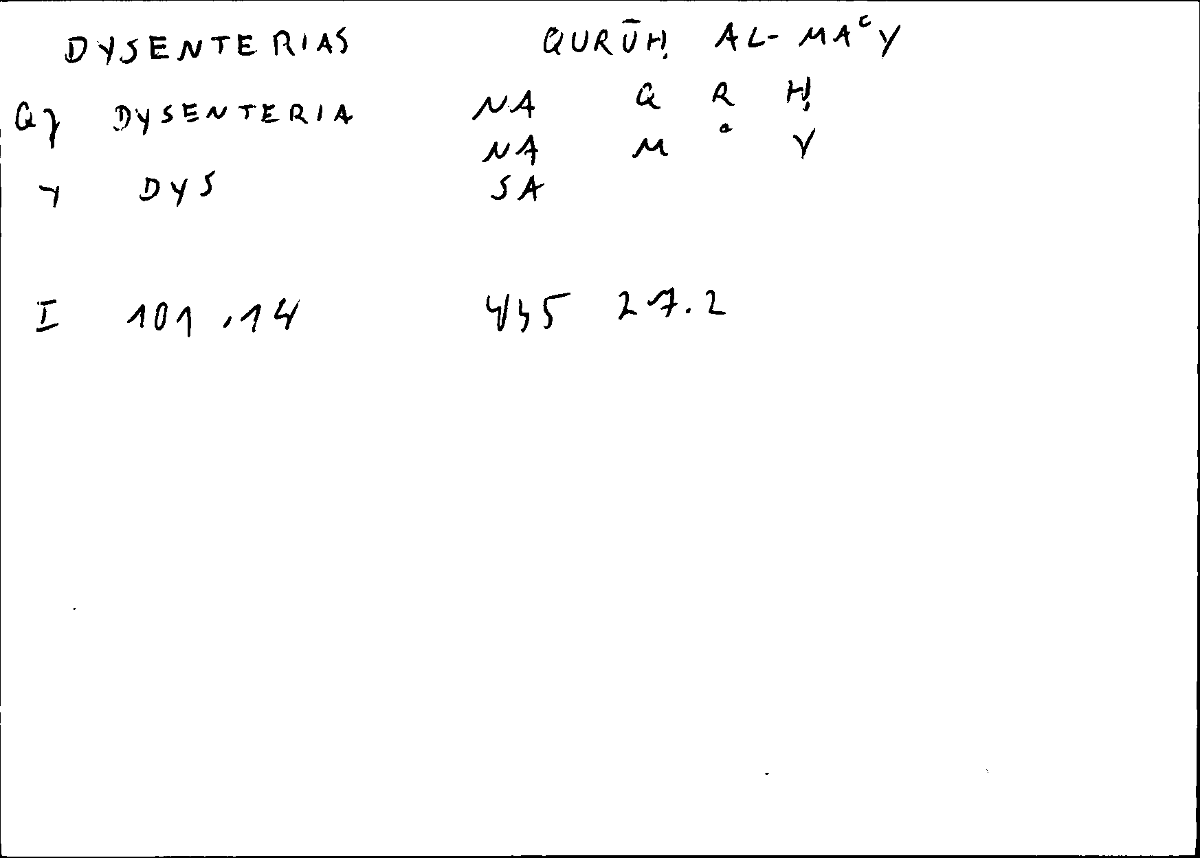 DYSENTERIAS QURŪḤ AL-MAᶜY
DYSENTERIA NA Q R Ḥ
NA M ᶜ Y
DYS SA
I 101,14 435 27.2